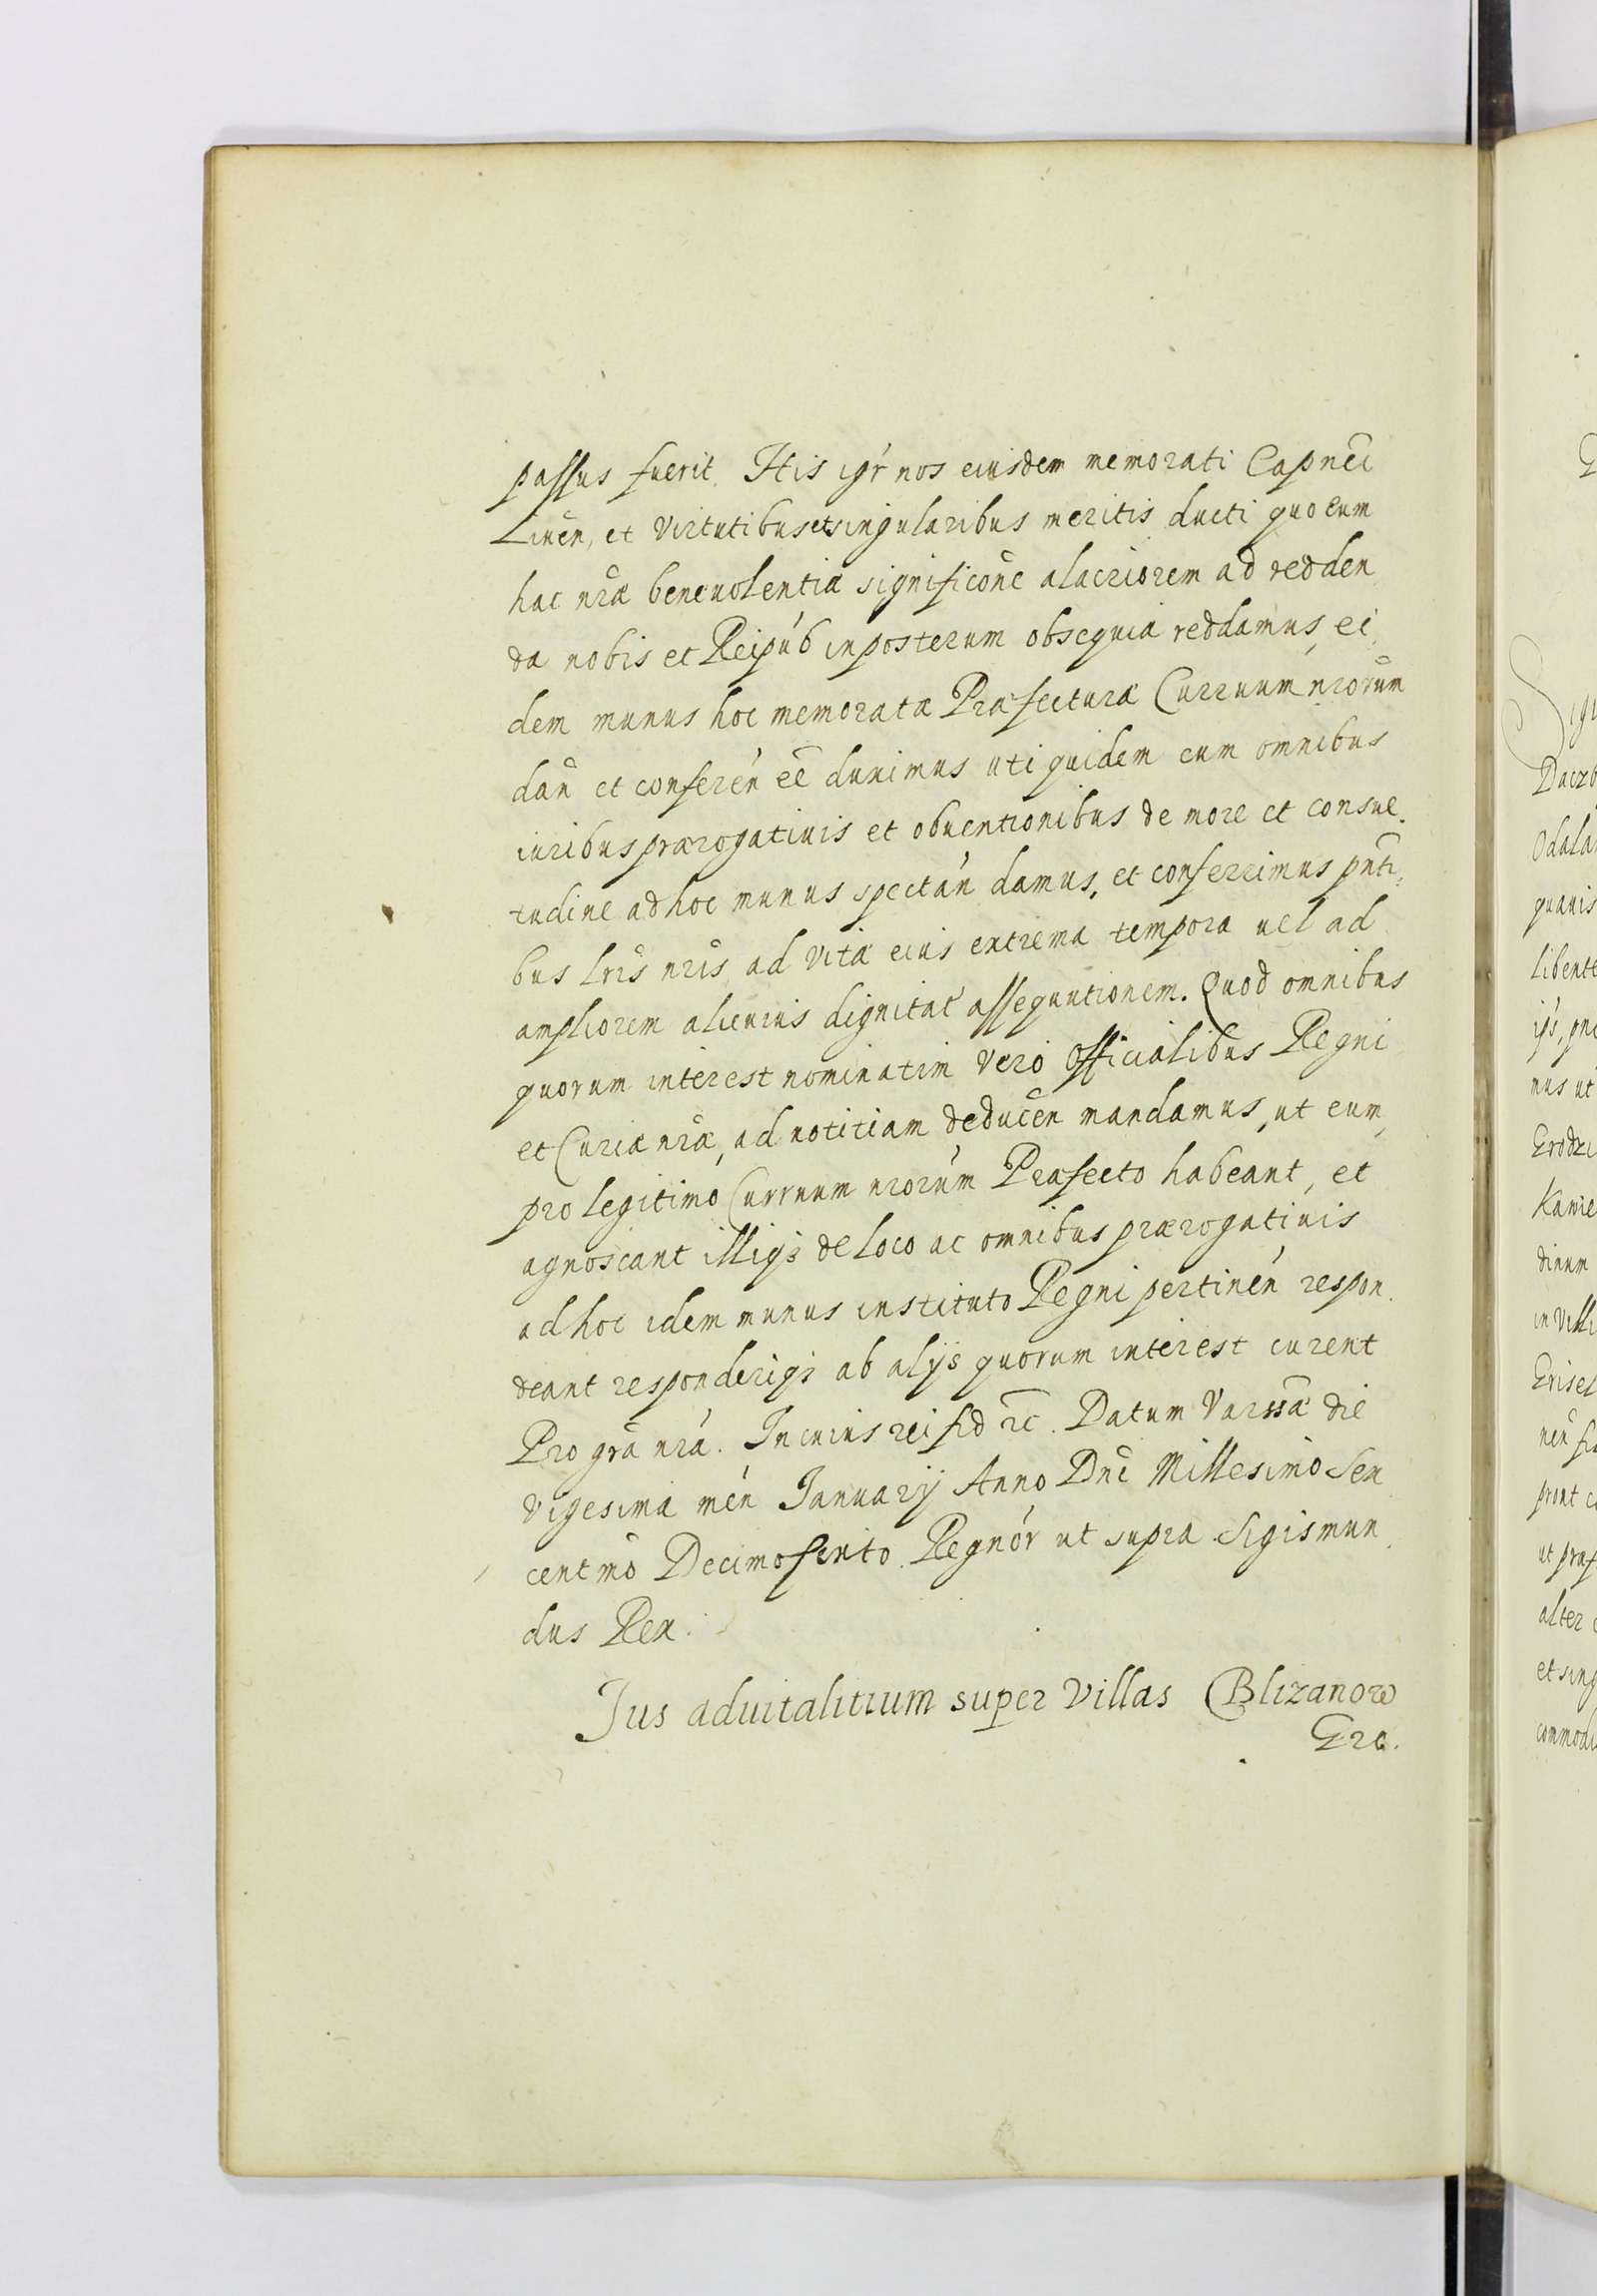 passus fuerit. His igr̃ nos eiusdem memorati Capnẽi
Liuẽn, et virtutibus et singularibus meritis ducti quo eum
hac nr̃æ beneuolentiæ significõne alacriorem ad redden
da nobis et Reipúb inposterum obsequia reddamus, ei
dem munus hoc memoratæ Præfecturæ Curruum nr̃orum
dañ et conferén eẽ duximus uti quidem cum omnibus
iuribus prærogatiuis et obuentionibus de more et consue.
tudine ad hoc munus spectán damus, et conferrimus pnti
bus lrĩs nrĩs ad vitæ eius extrema tempora uel ad
ampliorem alicuius dignitat assequutionem. Quod omnibus
quorum interest nominatim vero Officialibus Regni
et Curiæ nr̃æ, ad notitiam deducẽn mandamus, ut eum,
pro legitimo Curruum nrorúm Præfecto habeant, et
agnoscant illiqꝫ de loco ac omnibus prærogatiuis
ad hoc idem munus instituto Regni pertinén respon.
deant responderiqꝫ ab alijs quorum interest curent
Pro grã nrã. In cuius rei fid &c. Datum Varssæ die
vigesima mén Januarij Anno Dnĩ Millesimo Sex
centmõ Decimosexto. Regnór ut supra Sigismun
dus Rex.
Jus aduitalitium super Villas Blizanow
Erc.